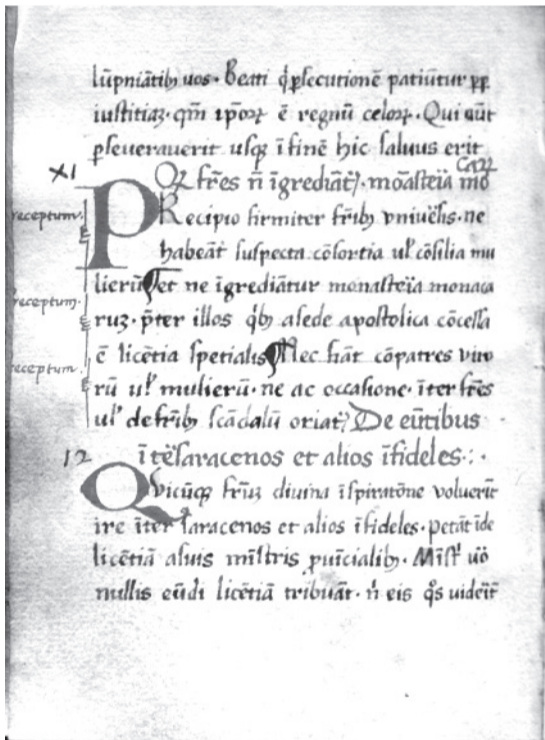 lūpniātibꝫ uos. Beati q̇ ꝑsecutionē patiūtur ꝓp
iustitiaꝫ. qm̄ ip̄oꝝ ē regnū celoꝝ. Qui aūt
ꝑseuerauerit usqꝫ ī finē hic saluus erit
XI
Qꝫ fr̄es n̄ īgrediāt᷑. moāsteia mo
caꝝ
PRecipio firmiter fr̄ibꝫ vniuēsis. ne
habeāt suspecta cōsortia ul᷑ cōsilia mu
lierū et ne īgrediātur monasteīa monaca
ruꝫ. p̄ter illos q̇bꝫ asede apostolica cōcessa
ē licētia spetialis Nec fiāt cōpatres viro
rū ul᷑ mulierū. ne ac occasione. īter fr̄es
ul᷑ defr̄ibꝫ scādalū oriat᷑ De eūtibus
receptum.
receptum.
receptum.
12
ītēsaracenos et alios īfideles.
Qvicūqꝫ fr̄uꝫ diuina īspiratōne voluerīt
ire īter saracenos et alios īfideles. petāt īde
licētiā asuis mīstris ꝓuīcialibꝫ. Mīst᷑ uō
nullis eūdi licētiā tribuāt. n̄ eis qͦs uideīt